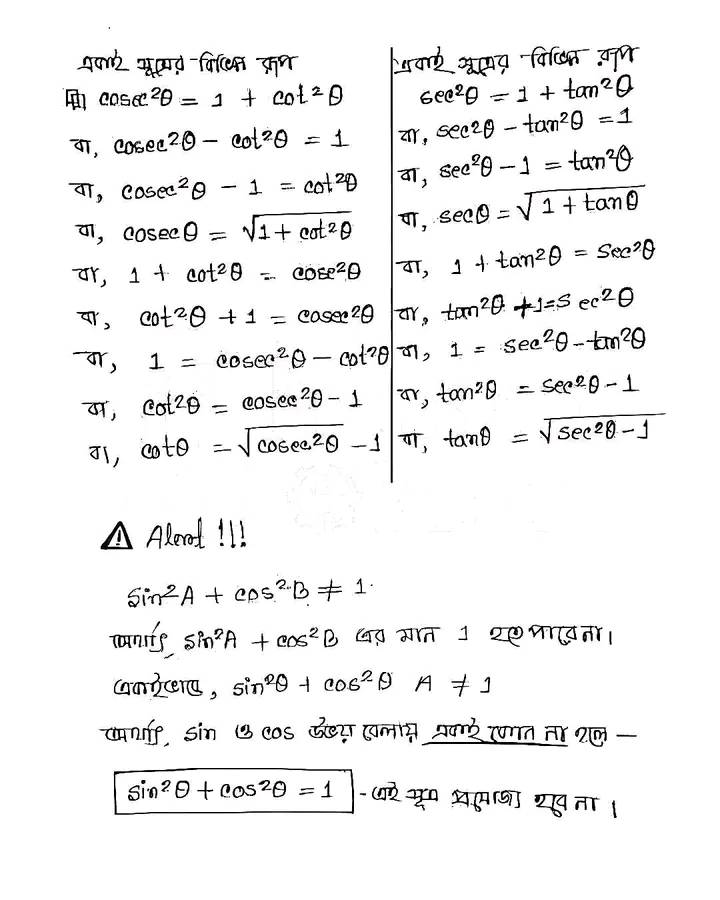 একই সূত্রের বিভিন্ন রূপ
cosec²θ = 1 + cot²θ
বা, cosec²θ - cot²θ = 1
বা, cosec²θ - 1 = cot²θ
বা, cosecθ = √1 + cot²θ
বা, 1 + cot²θ = cose²θ
বা, cot²θ + 1 = cosec²θ
বা, 1 = cosec²θ - cot²θ
বা, cot²θ = cosec²θ - 1
বা, cotθ = √cosec²θ - 1
একই সূত্রের বিভিন্ন রূপ
sec²θ = 1 + tan²θ
বা, sec²θ - tan²θ = 1
বা, sec²θ - 1 = tan²θ
বা, secθ = √1 + tanθ
বা, 1 + tan²θ = Sec²θ
বা, tan²θ + 1 = Sec²θ
বা, 1 = sec²θ - tan²θ
বা, tan²θ = sec²θ - 1
বা, tanθ = √sec²θ - 1
⚠ Alert !!!
Sin²A + cos²B ≠ 1.
অর্থাৎ, sin²A + cos²B এর মান 1 হতে পারে না।
একইভাবে, sin²θ + cos²θ A ≠ 1
অর্থাৎ, sin ও cos উভয় বেলায় একই কোণ না হলে —
sin²θ + cos²θ = 1 - এই সূত্র প্রযোজ্য হবে না।